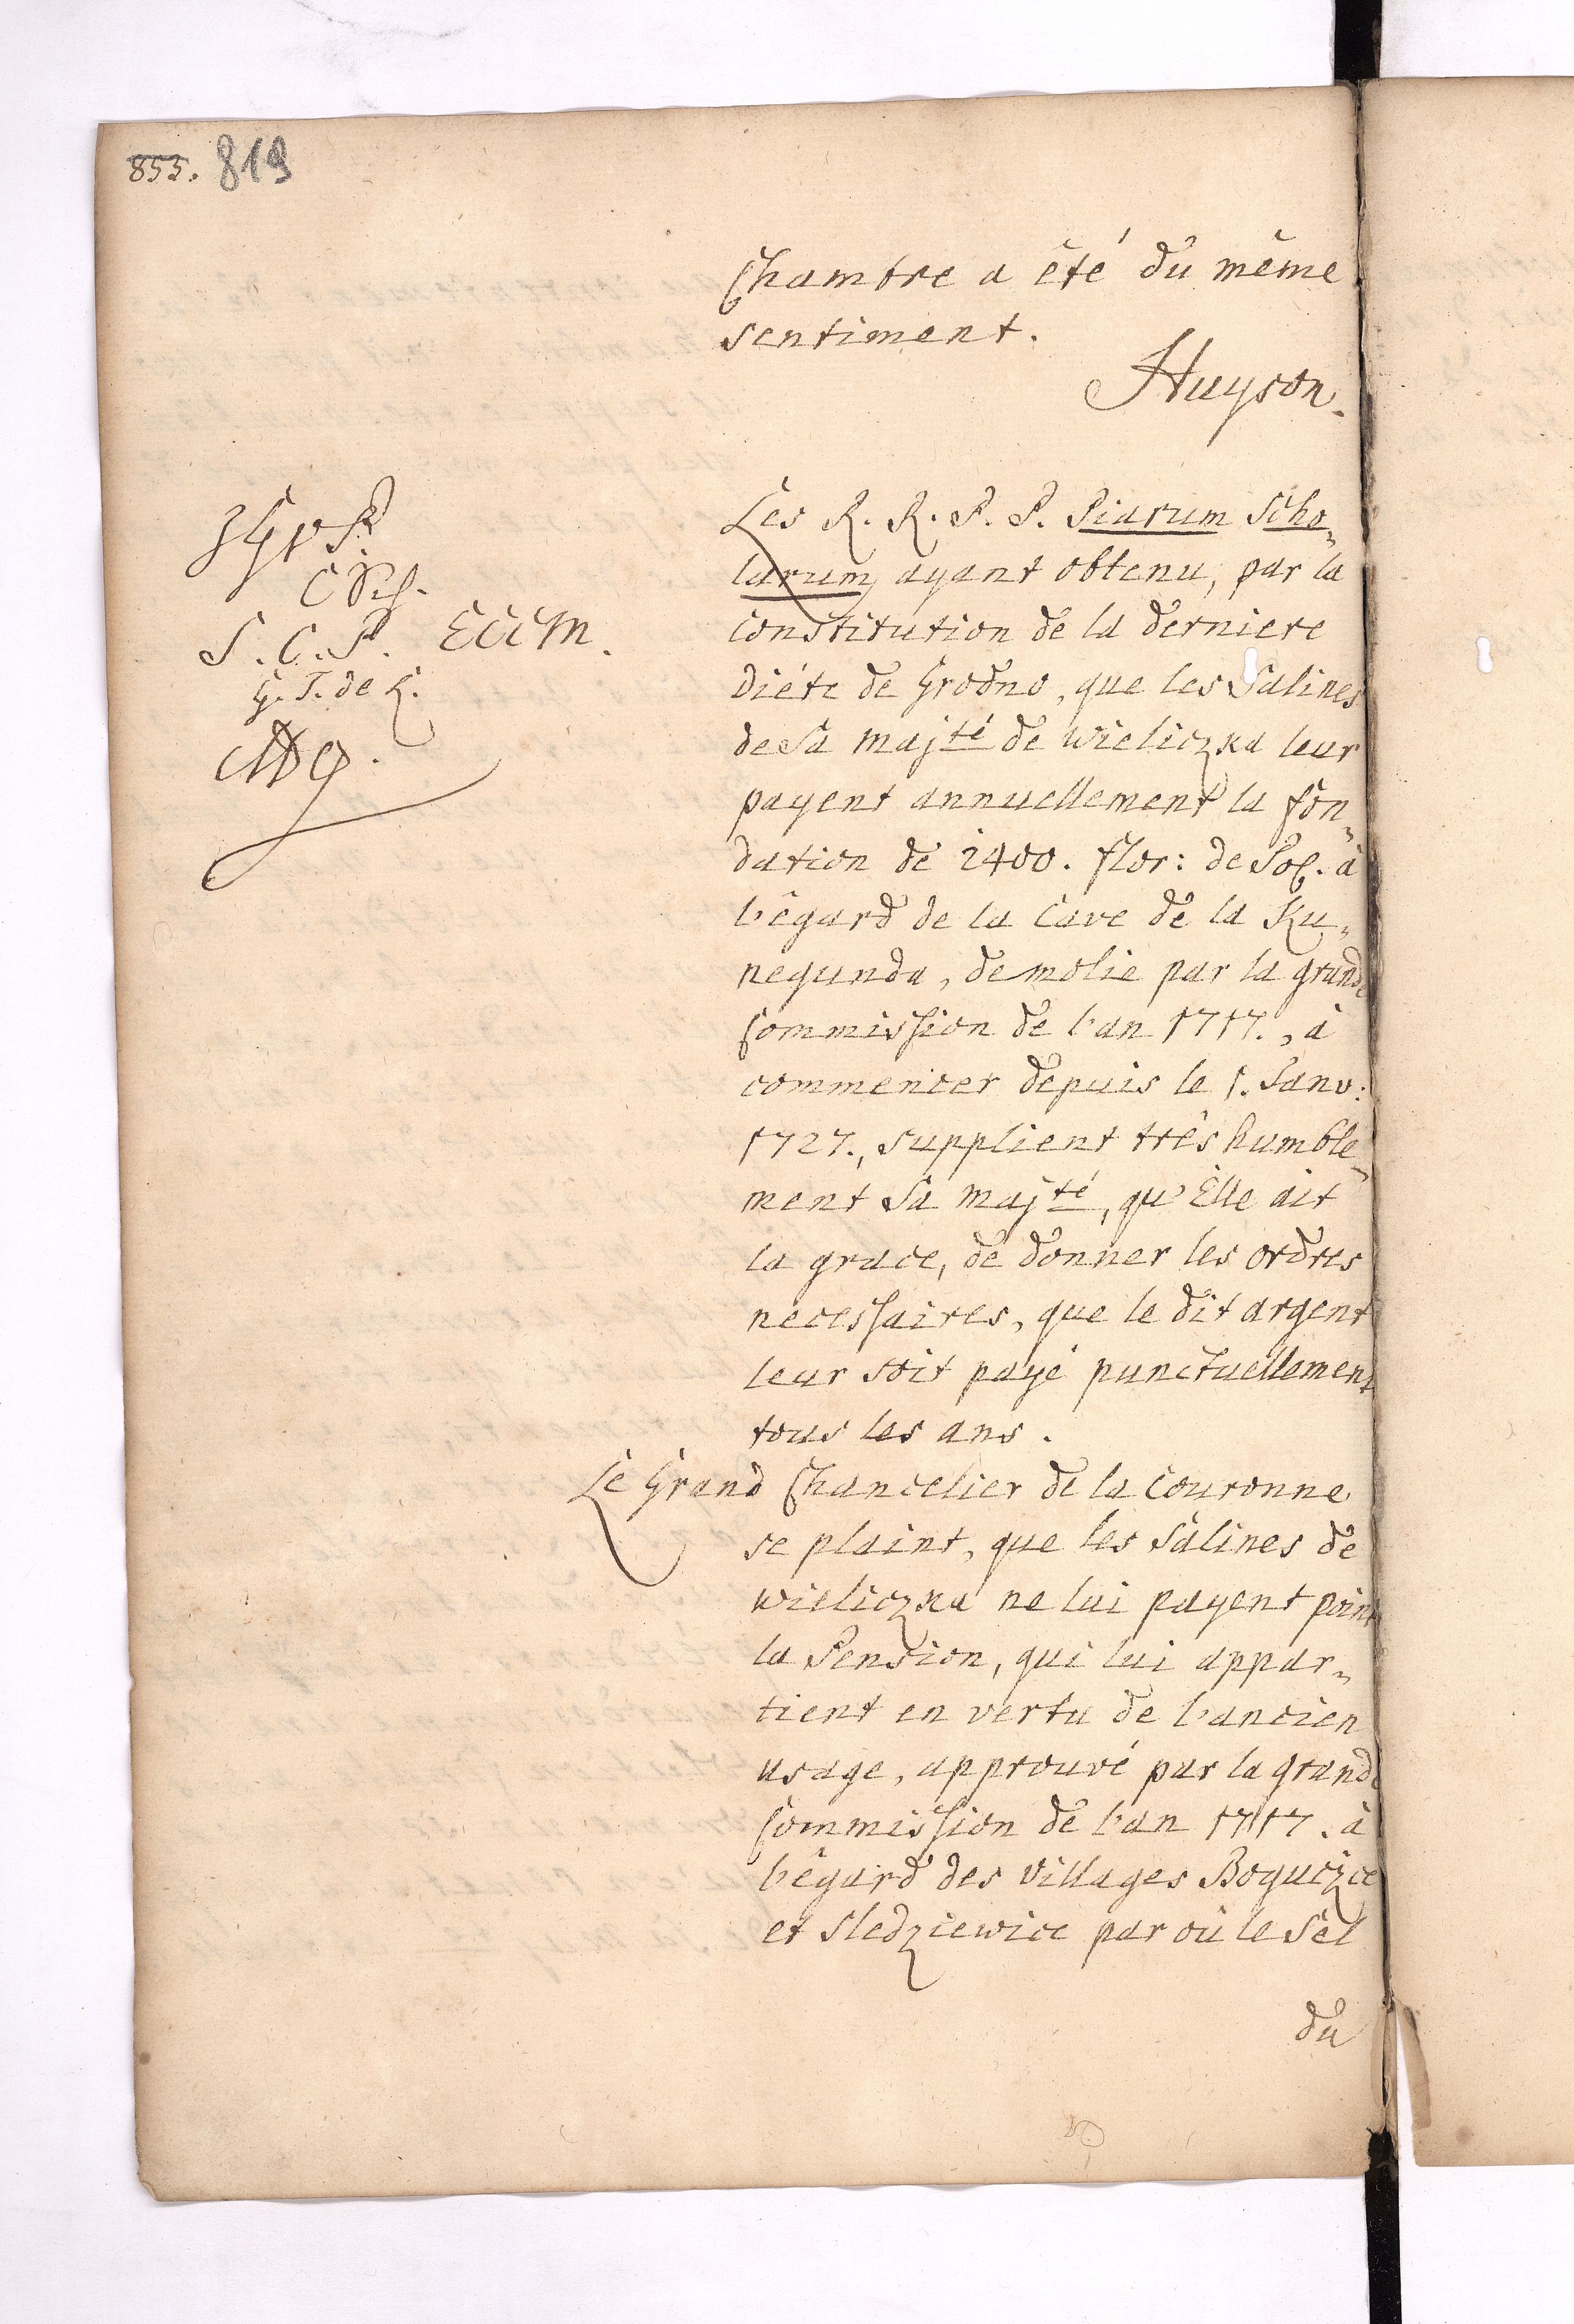 855. 819
Chambre a êté du même
sentiment.
Huyson.
S. C. P. ECCM.
G. T. de K.
Les R. R. P. P. Piarum Scho„
larum, ayant obtenu, par la
constitution de la derniere
diéte de Grodno, que les Salines
de Sa majté de Wieliczka leur
payent annuellement la fon„
dation de 2400. flor: de Pol. à
l'êgard de la Cave de la Ku„
negunda, demolie par la grande
Commission de l'an 1717., à
commencer depuis le 1. Janv:
1727., supplient très humble„
ment Sa majté, qu'Elle ait
la grace, de donner les ordres
necessaires, que le dit argent
leur soit payé punctuellement
tous les ans.
Le Grand Chancelier de la Couronne
se plaint, que les Salines de
Wieliczka ne lui payent point
la Pension, qui lui appar„
tient en vertu de l'ancien
usage, approuvé par la grande
Commission de l'an 1717. à
l'êgard des Villages Boguczice
et Sledziewice par où le Sel
du